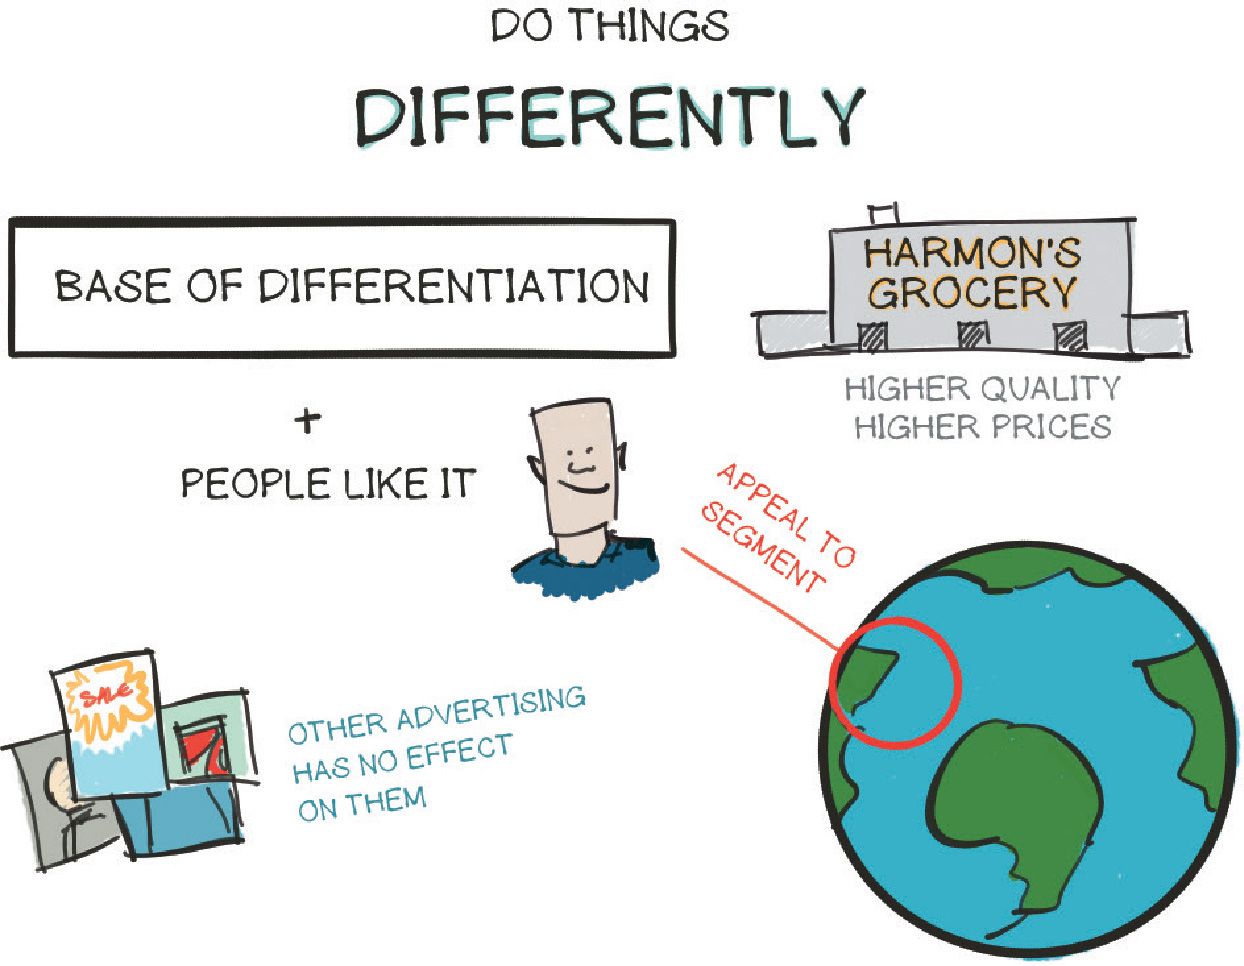 DO THINGS
DIFFERENTLY
BASE OF DIFFERENTIATION
HARMON'S
GROCERY
HIGHER QUALITY
HIGHER PRICES
+
PEOPLE LIKE IT
APPEAL TO
SEGMENT
SALE
OTHER ADVERTISING
HAS NO EFFECT
ON THEM